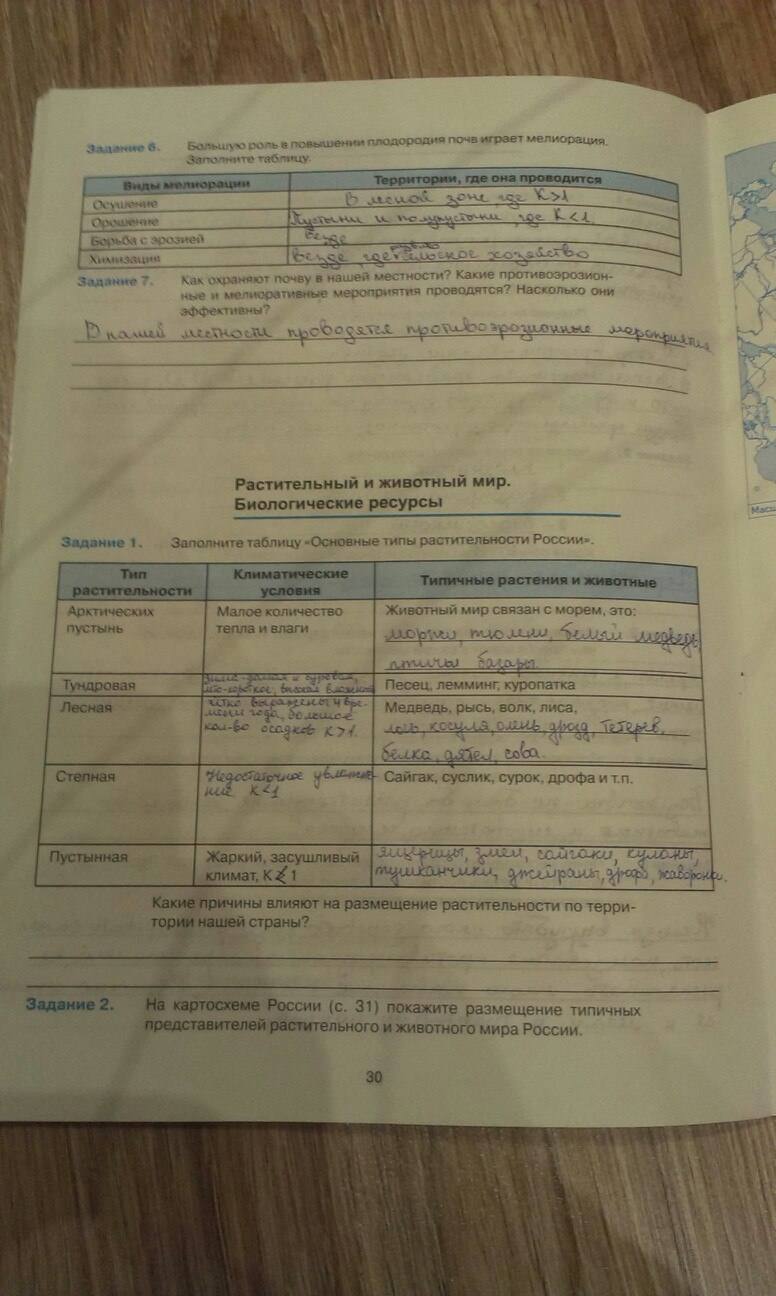 Задание 6. Большую роль в повышении плодородия почв играет мелиорация.
Заполните таблицу.
Виды мелиорации Территории, где она проводится
Осушение В лесной зоне, где К>1
Орошение Пустыни и полупустыни, где К<1
Борьба с эрозией Везде
Химизация Везде, где сельское хозяйство
Задание 7. Как охраняют почву в нашей местности? Какие противоэрозион-
ные и мелиоративные мероприятия проводятся? Насколько они
эффективны?
В нашей местности проводятся противоэрозионные мероприятия
Растительный и животный мир.
Биологические ресурсы
Задание 1. Заполните таблицу «Основные типы растительности России».
Тип Климатические Типичные растения и животные
растительности условия
Арктических Малое количество Животный мир связан с морем, это:
пустынь тепла и влаги моржи, тюлени, белый медведь,
птичьи базары.
Зима-долгая и суровая,
Тундровая лето-короткое, высокая влажность Песец, лемминг, куропатка
Лесная четко выражены 4 вре- Медведь, рысь, волк, лиса,
мени года, большое лось, косуля, олень, дрозд, тетерев,
кол-во осадков К>1. белка, дятел, сова.
Степная Недостаточное увлажне- Сайгак, суслик, сурок, дрофа и т.п.
ние К<1
Пустынная Жаркий, засушливый ящерицы, змеи, сайгаки, куланы,
климат, К < 1 тушканчики, джейраны, дрофа, жаворонки.
Какие причины влияют на размещение растительности по терри-
тории нашей страны?
Задание 2. На картосхеме России (с. 31) покажите размещение типичных
представителей растительного и животного мира России.
30